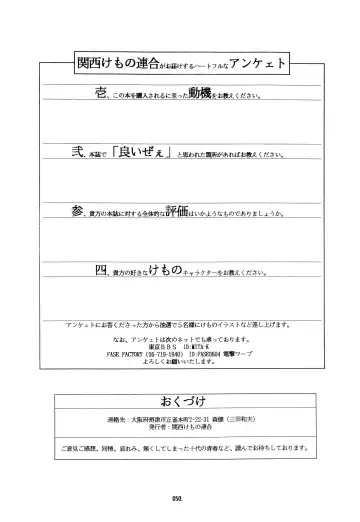 関西けもの連合がお届けするハートフルなアンケェト
壱、この本を購入されるに至った動機をお教えください。
弐、本誌で「良いぜぇ」と思われた箇所があればお教えください。
参、貴方の本誌に対する全体的な評価はいかようなものでありましょうか。
四、貴方の好きなけものキャラクターをお教えください。
アンケェトにお答えくださった方から抽選で5名様にけものイラストなど差し上げます。
なお、アンケェトは次のネットでも承っております。
東京BBS ID:MITA-K
FASE FACTORY (06-719-1640) ID:FASE0604 電撃ワープ
よろしくお願いいたします。
おくづけ
連絡先：大阪府摂津市正雀本町2-22-31 森様（三田和夫）
発行者：関西けもの連合
ご意見ご感想、同情、哀れみ、無くしてしまった十代の青春など、謹んでお待ちしております。
050.